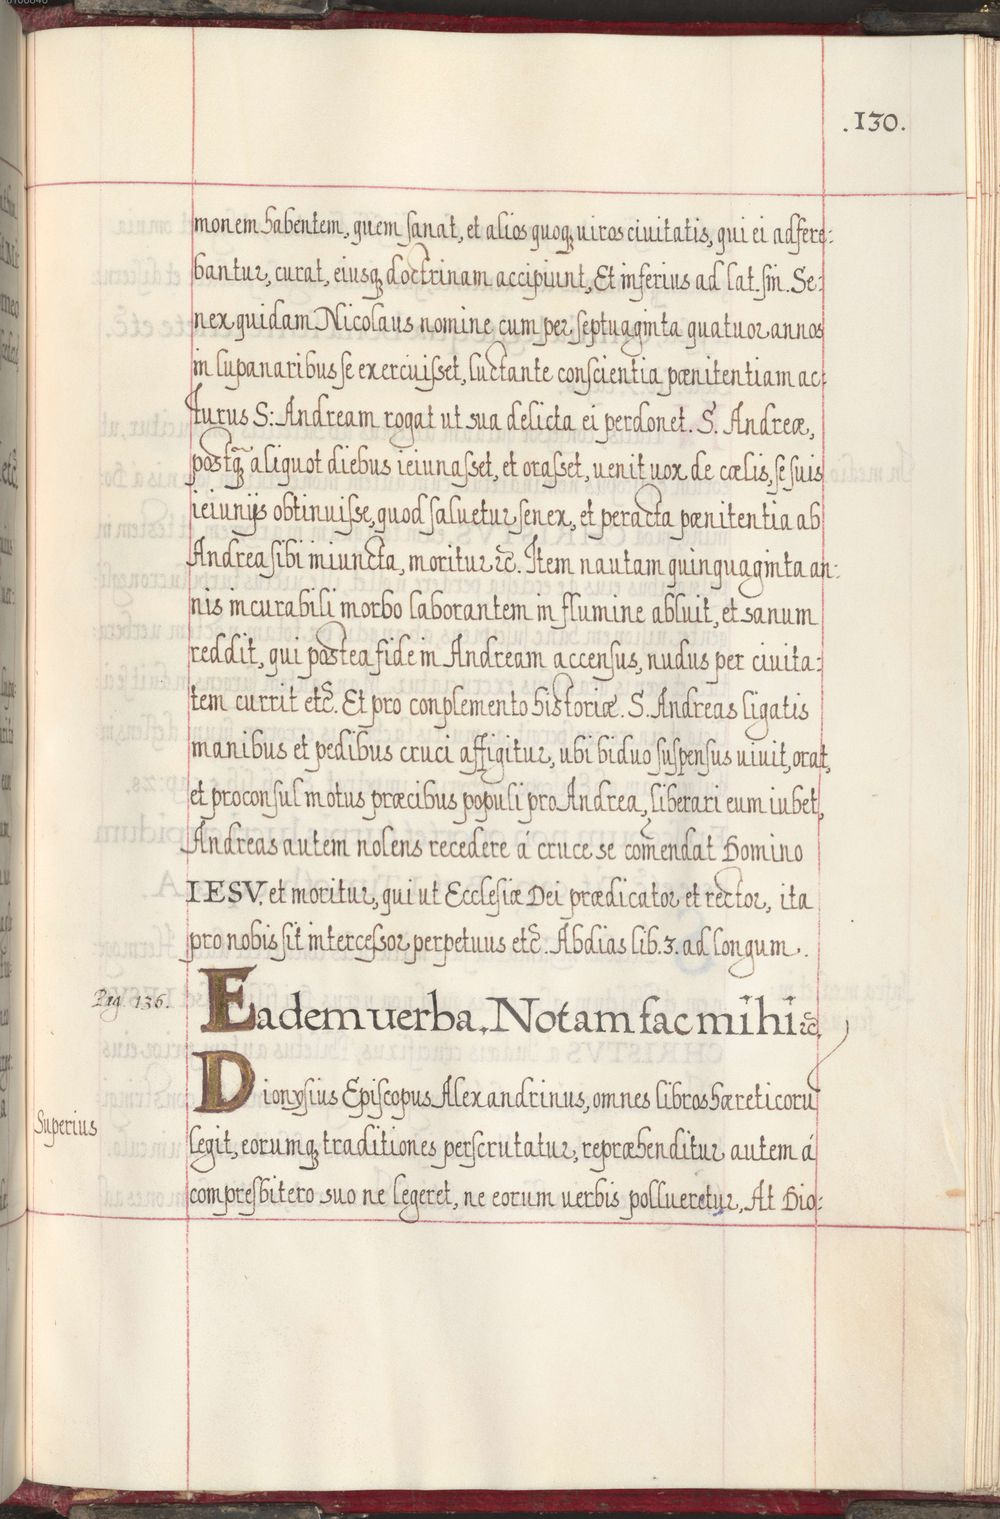 .130.
monem habentem, quem sanat, et alios quoq; uiros ciuitatis, qui ei adfere:
bantur, curat, eiusq; doctrinam accipiunt, Et inferius ad lat. sin. Se:
nex quidam Nicolaus nomine cum per septuaginta quatuor annos
in lupanaribus se exercuisset, luctante conscientia pœnitentiam ac:
turus S: Andream rogat ut sua delicta ei perdonet. S. Andreæ,
postq̃ aliquot diebus ieiunasset, et orasset, uenit uox de cælis, se suis
ieiunijs obtinuisse, quod saluetur senex, et peracta pœnitentia ab
Andrea sibi iniuncta, moritur ꝛc̃. Item nautam quinquaginta an:
nis incurabili morbo laborantem in flumine abluit, et sanum
reddit, qui postea fide in Andream accensus, nudus per ciuita:
tem currit etc̃. Et pro conplemento historiæ. S. Andreas ligatis
manibus et pedibus cruci affigitur, ubi biduo suspensus uiuit, orat,
et proconsul motus præcibus populi pro Andrea, liberari eum iubet,
Andreas autem nolens recedere á cruce se com̃endat Domino
IESV. et moritur, qui ut Ecclesiæ Dei prædicator et rector, ita
pro nobis sit intercessor perpetuus etc̃. Abdias lib. 3. ad longum.
Pag. 136.
Eadem uerba. Notam fac mihi ꝛc̃,
Dionysius Episcopus Alexandrinus, omnes libros hæreticorũ
Superius
legit, eorumq; traditiones perscrutatur, repræhenditur autem á
compresbitero suo ne legeret, ne eorum uerbis pollueretur, At Dio: